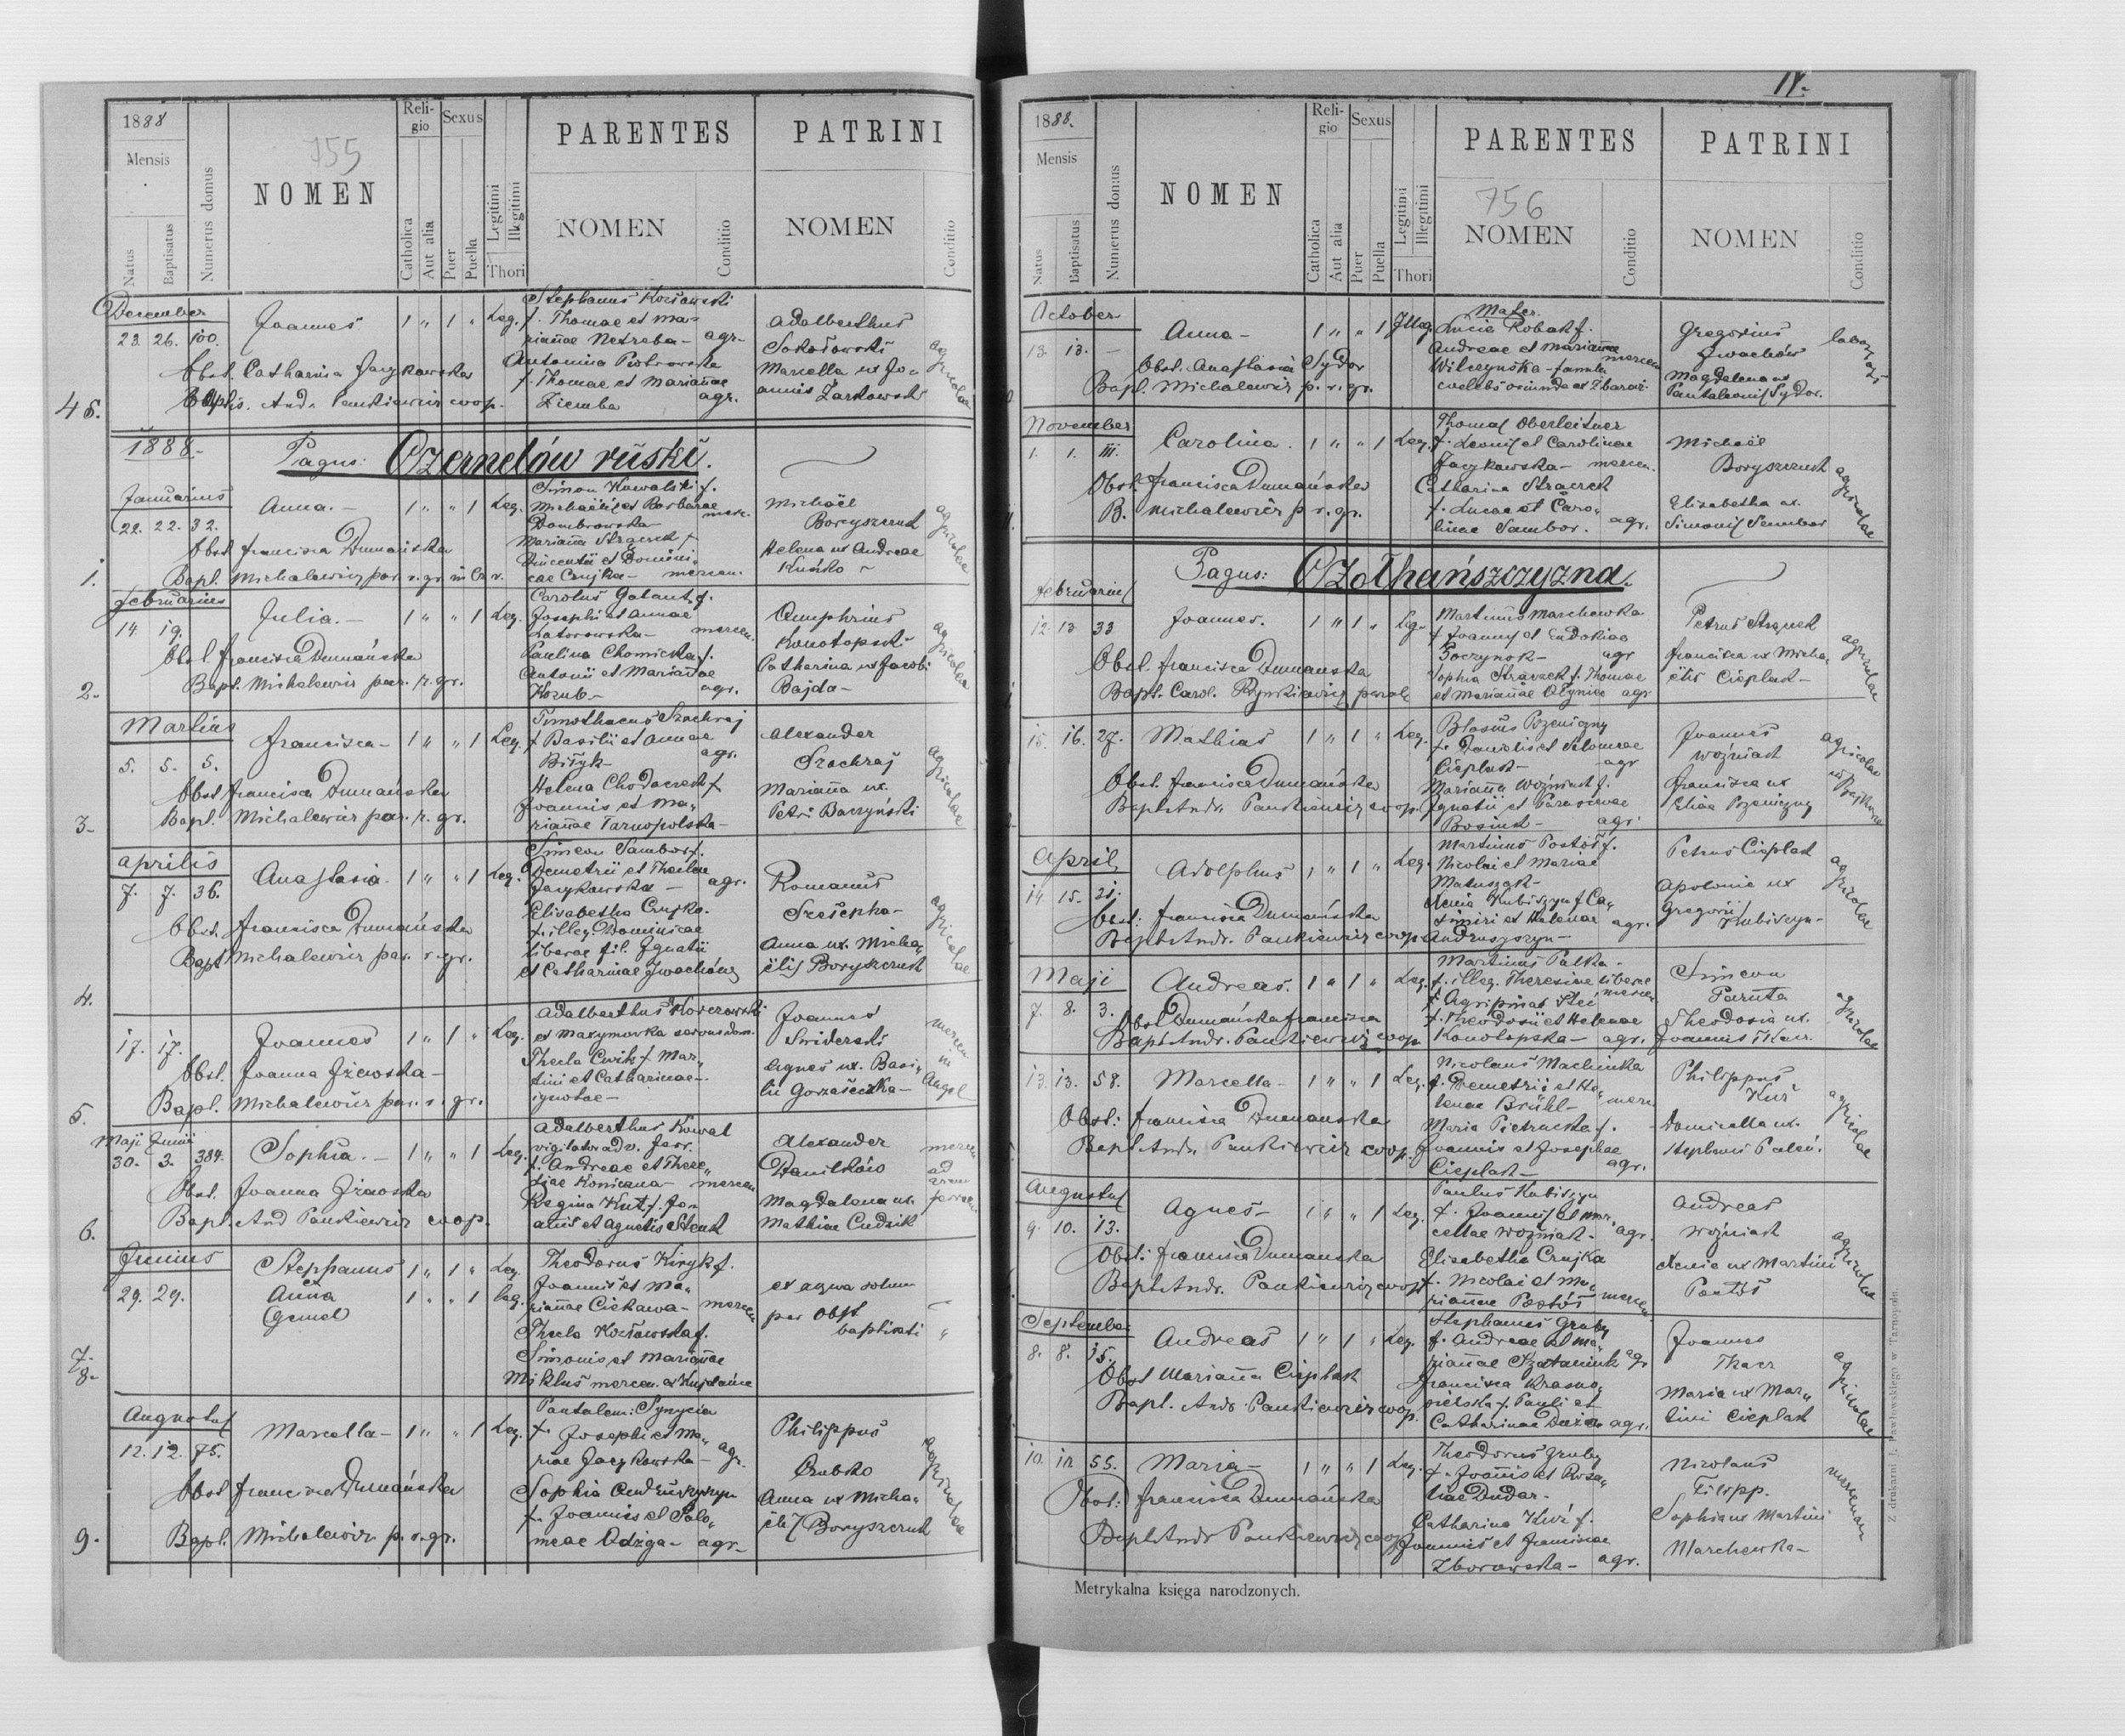 1888
Mensis
Natus
Baptisatus
Numerus domus
755
NOMEN
Religio
Catholica
Aut alia
Sexus
Puer
Puella
Legitimi
Illegitimi
Thori
PARENTES
NOMEN
Conditio
PATRINI
NOMEN
Conditio
December
23. 26. 100.
Joannes
1 " 1 " Leg.
Stephanus
f. Thomae et Ma-
riannae Netreba - agr.
Antonina Piotrowska
f. Thomae et Mariannae
Ziemba agr.
Adalberthus
Sokołowski
Marcella ux Jo-
annis Zarkowski
agricolae
Obst. Catharina Jacykowska
Baptis. And. Pankiewicz coop.
45.
1888.
Pagus: Czernelów ruski.
Januarius
22. 22. 32.
Anna. -
1 " " 1 Leg.
Simon Kowalski f.
Michaëlis et Barbarae
Dombrowska merc.
Marianna
Vincentii et Domini-
cae Czujka - mercen.
Michaël
Boryszczuk
Helena ux Andreae
agricolae
Obst. Francisca Dumańska
Bapt. Michalewicz par. r. gr. in Cz. r.
1.
Februarius
14 19.
Julia. -
1 " " 1 Leg.
Carolus Galant f.
Josephi et Annae
mercen.
Paulina Chomicka f.
Antonii et Mariannae
Kozub - agr.
Onuphrius
Konotopski
Catharina ux Jacobi
Bajda -
agricolae
Obst. Francisca Dumańska
Bapt. Michalewicz par. r. gr.
2.
Martius
5. 5. 5.
Francisca -
1 " " 1 Leg.
Timothaeus Szachraj
f. Basilii et Annae
Biłyk - agr.
Helena Chodaczek f.
Joannis et Ma-
riannae Tarnopolska -
Alexander
Szachraj
Marianna ux.
Petri Baczyński
agricolae
Obst. Francisca Dumańska
Bapt. Michalewicz par. r. gr.
3.
Aprilis
7. 7. 36.
Anastasia.
1 " " 1 Leg.
Simeon Sambor f.
Demetrii et Theclae
Jacykowska - agr.
Elisabetha Czujka.
f. illeg. Dominicae
liberae fil. Ignatii
et Catharinae Iwachów
Romanus
Anna ux. Micha-
ëlis Boryszczuk
agricolae
Obst. Francisca Dumańska
Bapt. Michalewicz par. r. gr.
4.
17. 17.
Joannes
1 " 1 " Leg.
Adalberthus
ex Maxymowka
Thecla Cwik f. Mar-
tini et Catharinae -
ignotae -
Joannes
Świderski
Agnes ux. Basi-
lii
mercen
Obst. Joanna
Bapt. Michalewicz par. r. gr.
5.
Maji Junii
30. 3. 384.
Sophia. -
1 " " 1 Leg.
Adalberthus Kowal
f. Andreae et There-
siae - mercen
Regina Kut f. Jo-
annis et Agnetis
Alexander
Daniłków
Magdalena ux.
Mathiae Cudzik
mercen
ad
Obst. Joanna
Bapt. And Pankiewicz coop.
6.
Junius
29. 29.
Stephanus
1 " 1 " Leg.
Anna
1 " " 1 Leg.
Gemel
Theodorus Kiryk f.
Joannis et Ma-
riannae Ciekawa - mercen
Thecla Kozłowska f.
Simonis et Mariannae
Miklus mercen.
ex aqua solum
per Obst
baptisati
7.
8.
Augustus
12. 12. 75.
Marcella -
1 " " 1 Leg.
f. Josephi et Ma-
riae Jacykowska - agr.
Sophia Andruszyszyn
f. Joannis et Salo-
meae Odzga - agr.
Philippus
Anna ux Micha-
ëlis Boryszczuk
agricolae
Obst Francisca Dumańska
Bapt. Michalewicz p. r. gr.
9.
1888.
Mensis
Natus
Baptisatus
Numerus domus
NOMEN
Religio
Catholica
Aut alia
Sexus
Puer
Puella
Legitimi
Illegitimi
Thori
PARENTES
756
NOMEN
Conditio
PATRINI
NOMEN
Conditio
October
13. 13. -
Anna -
1 " " 1 Illeg.
Mater.
Lucia Robak f.
Andreae et Mariannae
Wilczyńska - famula
Gregorius
Iwachów
Magdalena ux
Pantaleonis Sydor.
Obst. Anastasia Sydor
Bapt. Michalewicz p. r. gr.
November
1. 1. III.
Carolina.
1 " " 1 Leg.
Thomas Oberleitner
f. Leonis et Carolinae
Jacykowska - mercen.
Catharina
f. Lucae et Caro-
linae Sambor. agr.
Michaël
Boryszczuk
Elisabetha ux.
Simonis Sambor
agricolae
Obst. Francisca Dumańska
B. Michalewicz p. r. gr.
Pagus: Czołhańszczyzna.
Februarius
12. 13 33
Joannes.
1 " 1 " Leg.
Martinus Marchewka
f. Joannis et Eudokiae
Poczynok - agr
Sophia f. Thomae
et Mariannae Ołyniec agr
Petrus
Francisca ux Micha-
ëlis Cieplak -
agricolae
Obst. Francisca Dumanska
Bapt. Carol. paroch
15. 16. 27.
Mathias
1 " 1 " Leg.
Blasius Pszeniczny
f. Danielis et Salomeae
Cieplak - agr
Marianna Woźniak f.
Ignatii et Parasciae
agr.
Joannes
Woźniak
Francisca ux
Eliae Pszeniczny
agricolae
Obst. Francisca Dumańska
Bapt. Andr. Pankiewicz coop.
April
14. 15. 21.
Adolphus
1 " 1 " Leg.
Martinus Postół f.
Nicolai et Mariae
Matuszak -
Xenia Kubiszyn f. Ca-
simiri et Helenae agr.
Andruszyszyn -
Petrus Cieplak
Apolonia ux
Gregorii
Kubiszyn -
agricolae
Obst: Francisca Dumańska
Bapt. Andr. Pankiewicz coop
Maji
7. 8. 3.
Andreas.
1 " 1 " Leg.
Martinus Palka -
f. illeg. Theresiae liberae
mercen
f. Theodosii et Helenae
Konotopska - agr.
Simeon
Paruta
Theodosia ux.
Joannis Tkacz.
agricolae
Obst Dumańska Francisca
Bapt. Andr. Pankiewicz coop
13. 13. 58.
Marcella -
1 " " 1 Leg.
Nicolaus Machinka
f. Demetrii et He-
lenae Brühl - merc
Maria Pietruska f.
Joannis et Josephae
Cieplak - agr.
Philippus
Domicella ux.
Stephani
agricolae
Obst: Francisca Dumanska
Bapt. Andr. Pankiewicz coop.
Augustus
9. 10. 13.
Agnes -
1 " " 1 Leg.
Paulus Kubiszyn
f. Joannis et Mar-
cellae Woźniak - agr.
Elisabetha Czujka
f. Nicolai et Ma-
riannae Postół mercen
Andreas
Woźniak
Xenia ux Martini
Postół
agricolae
Obst: Francisca Dumanska
Bapt. Andr. Pankiewicz coop
September
8. 8. 15.
Andreas
1 " 1 " Leg.
Stephanus Gruby
f. Andreae et Ma-
riannae agr
Francisca Krasno-
pielska f. Pauli et
Catharinae agr.
Joannes
Tkacz
Maria ux Mar-
tini Cieplak
agricolae
Obst Marianna Cieplak
Bapt. Andr. Pankiewicz coop.
10. 10. 55.
Maria -
1 " " 1 Leg.
Theodorus Gruby
f. Joannis et Rosa-
liae Dudar -
Catharina f.
Joannis et Franciscae
Zborowska - agr.
Nicolaus
Filipp.
Sophia ux Martini
Marchewka -
Obst: Francisca Dumańska
Bapt. Andr Pankiewicz coop
Metrykalna księga narodzonych.
Z drukarni J. Pawłowskiego w Tarnopolu.